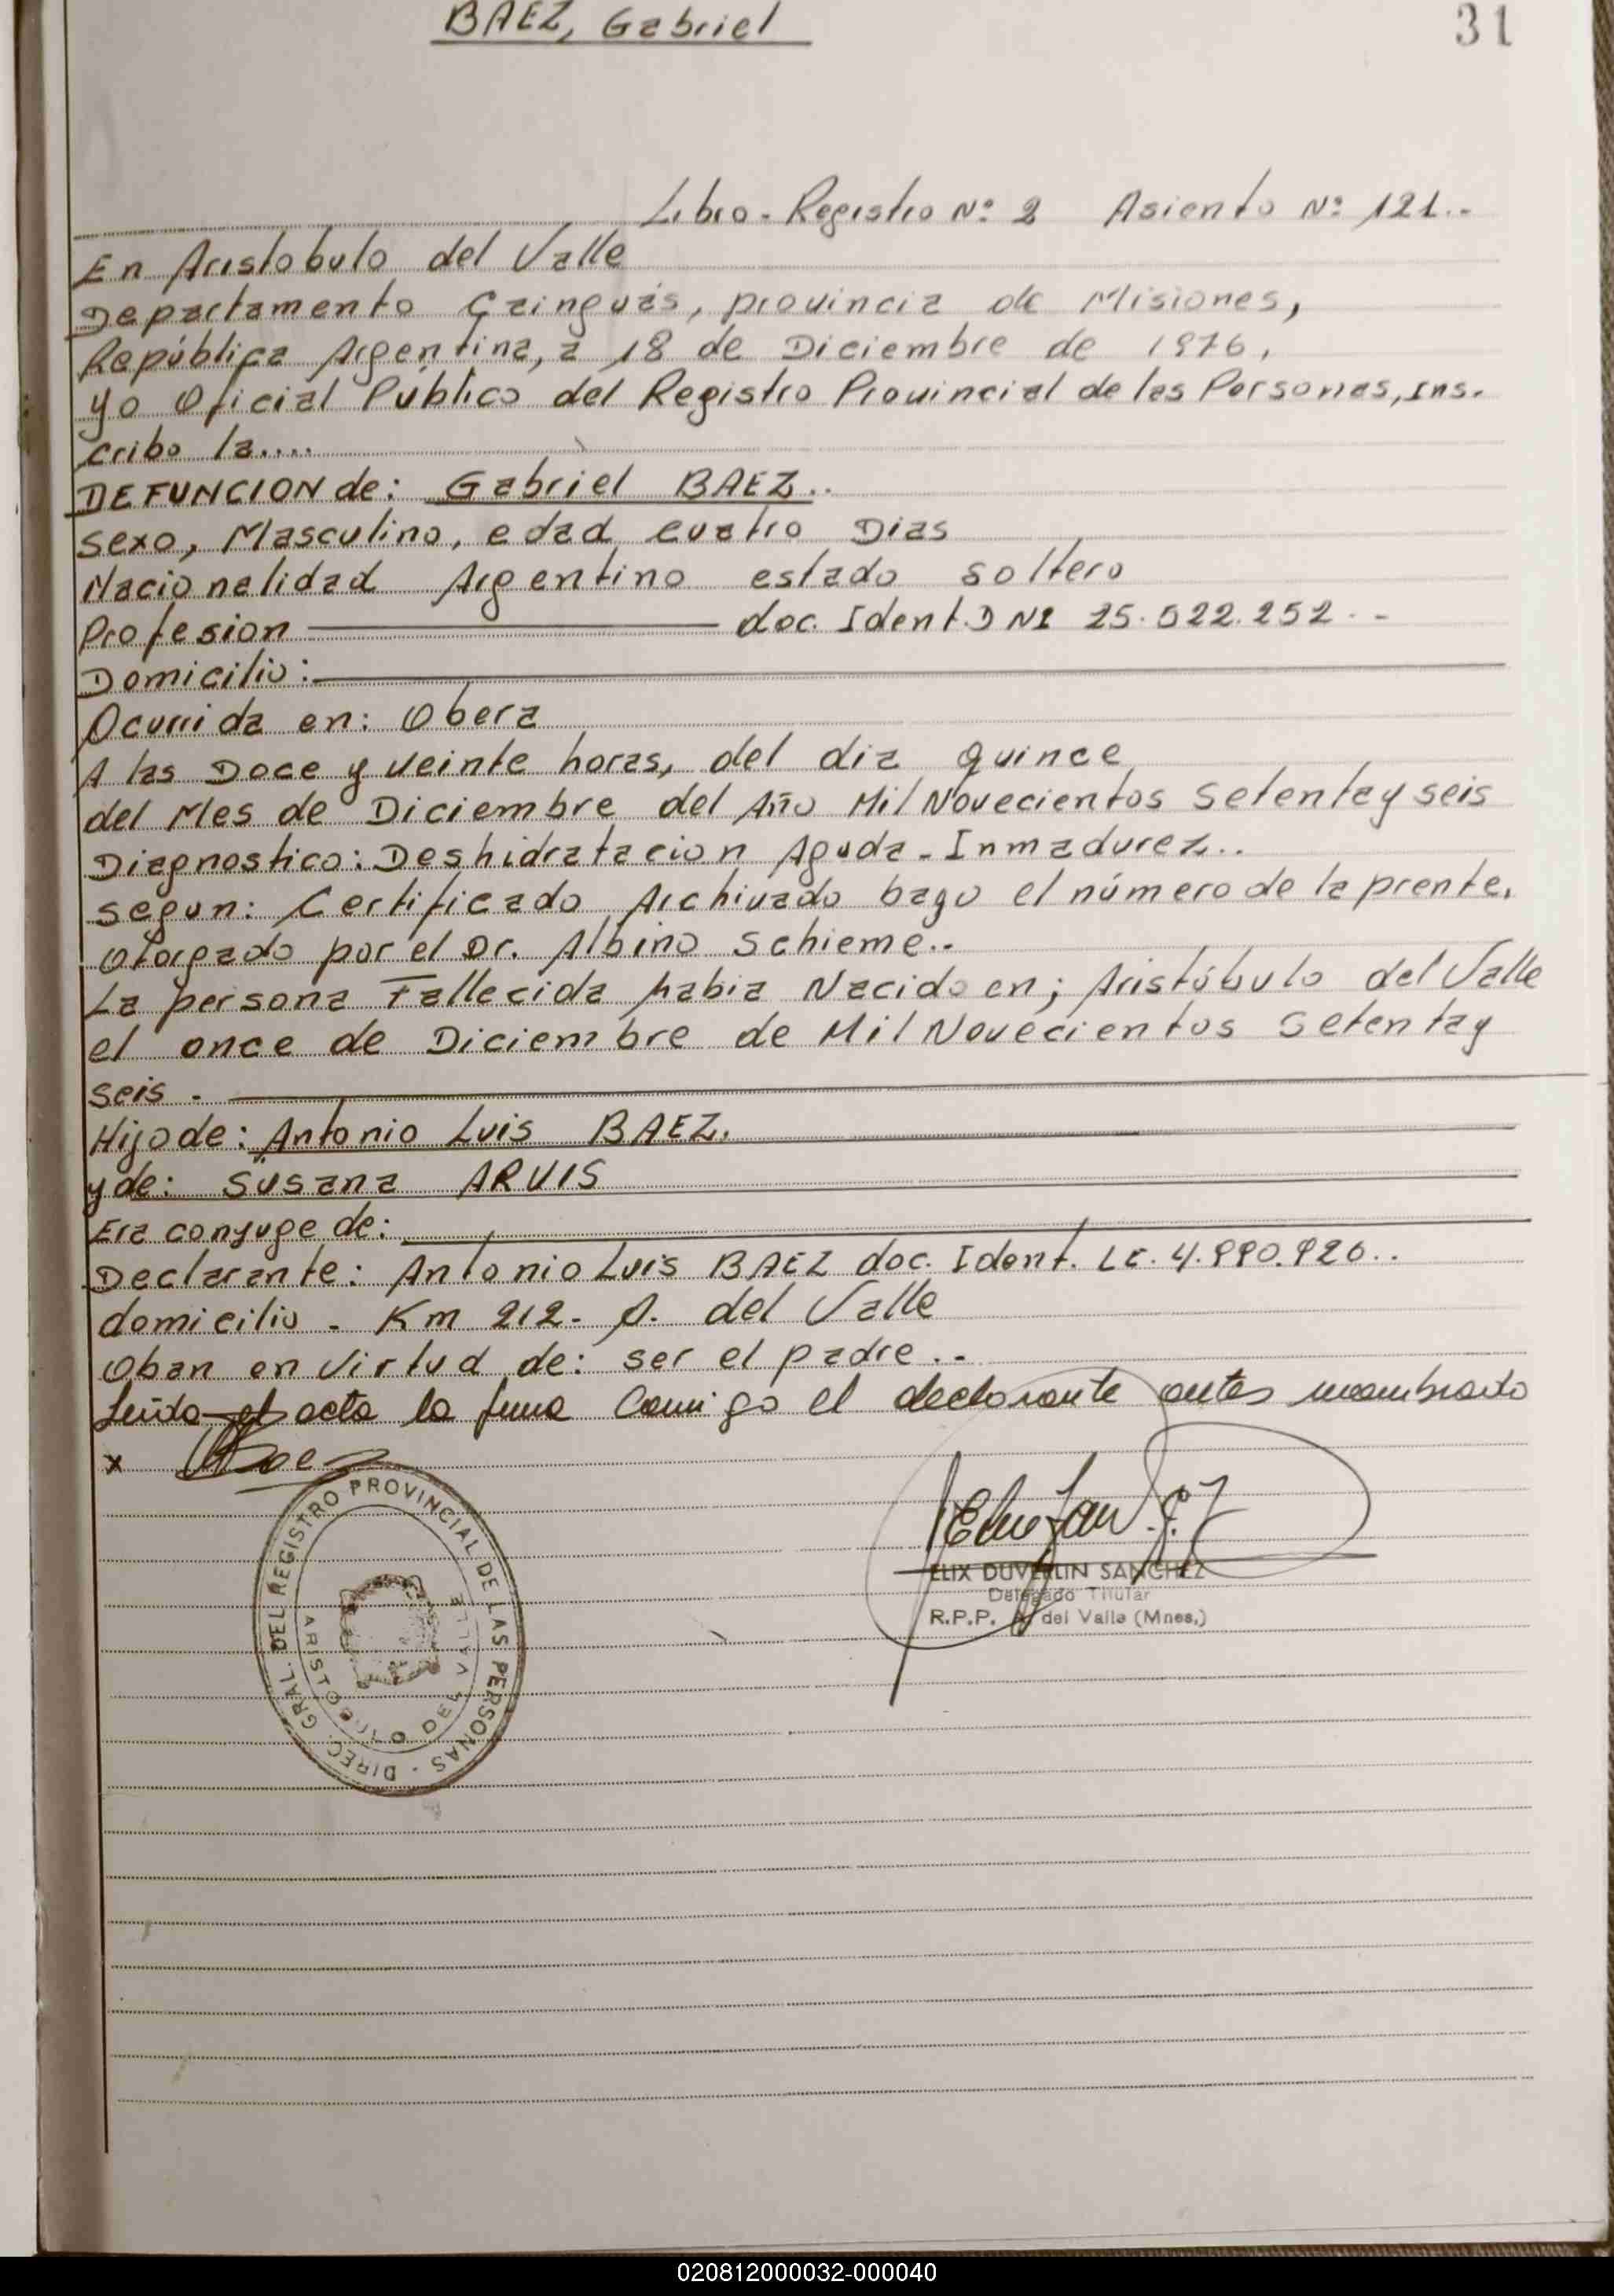 BAEZ, Gabriel
31
Libro-Registro Nº 2 Asiento Nº 121..
En Aristobulo del Valle
Departamento Cainguás, provincia de Misiones,
República Argentina, a 18 de Diciembre de 1976,
yo Oficial Público del Registro Provincial de las Personas, ins-
cribo la....
DEFUNCION de: Gabriel BAEZ..
sexo, Masculino, edad cuatro Dias
Nacionalidad Argentino estado soltero
Profesion doc. Ident. DNI 25.522.252..-
Domicilio:
Ocurrida en: Obera
A las Doce y veinte horas, del dia quince
del Mes de Diciembre del Año Mil Novecientos Setentay seis
Diagnostico: Deshidratacion Aguda-Inmadurez..
segun: Certificado Archivado bago el número de la prente.
otorgado por el Dr. Albino Schieme..
La persona Fallecida habia Nacido en; Aristóbulo del Valle
el once de Diciembre de Mil Novecientos Setentay
seis.
Hijo de: Antonio Luis BAEZ.
y de: Susana ARUIS
Era conyuge de:
Declarante: Antonio Luis BAEZ doc. Ident. LE. 4.990.926..
domicilio - Km 212- A. del Valle
Oban en virtud de: ser el padre..
Leída el acta la firma Conmigo el declarante antes nombrado
x Baez
DIREC. GRAL. DEL REGISTRO PROVINCIAL DE LAS PERSONAS
ARISTOBULO DEL VALLE
ELIX DUVERLIN SANCHEZ
Delegado Titular
R.P.P. A. del Valle (Mnes.)
020812000032-000040